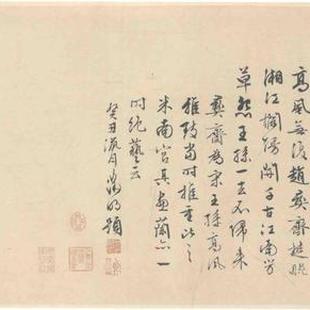 高風無復趙彝齋楚畹
湘江爛熳開千古江南芳
草怨王孫一去不歸來
彝齋為宋王孫高風
雅致當時推重比之
米南宮其畫蘭亦一
時絕藝云
癸丑流月 明題